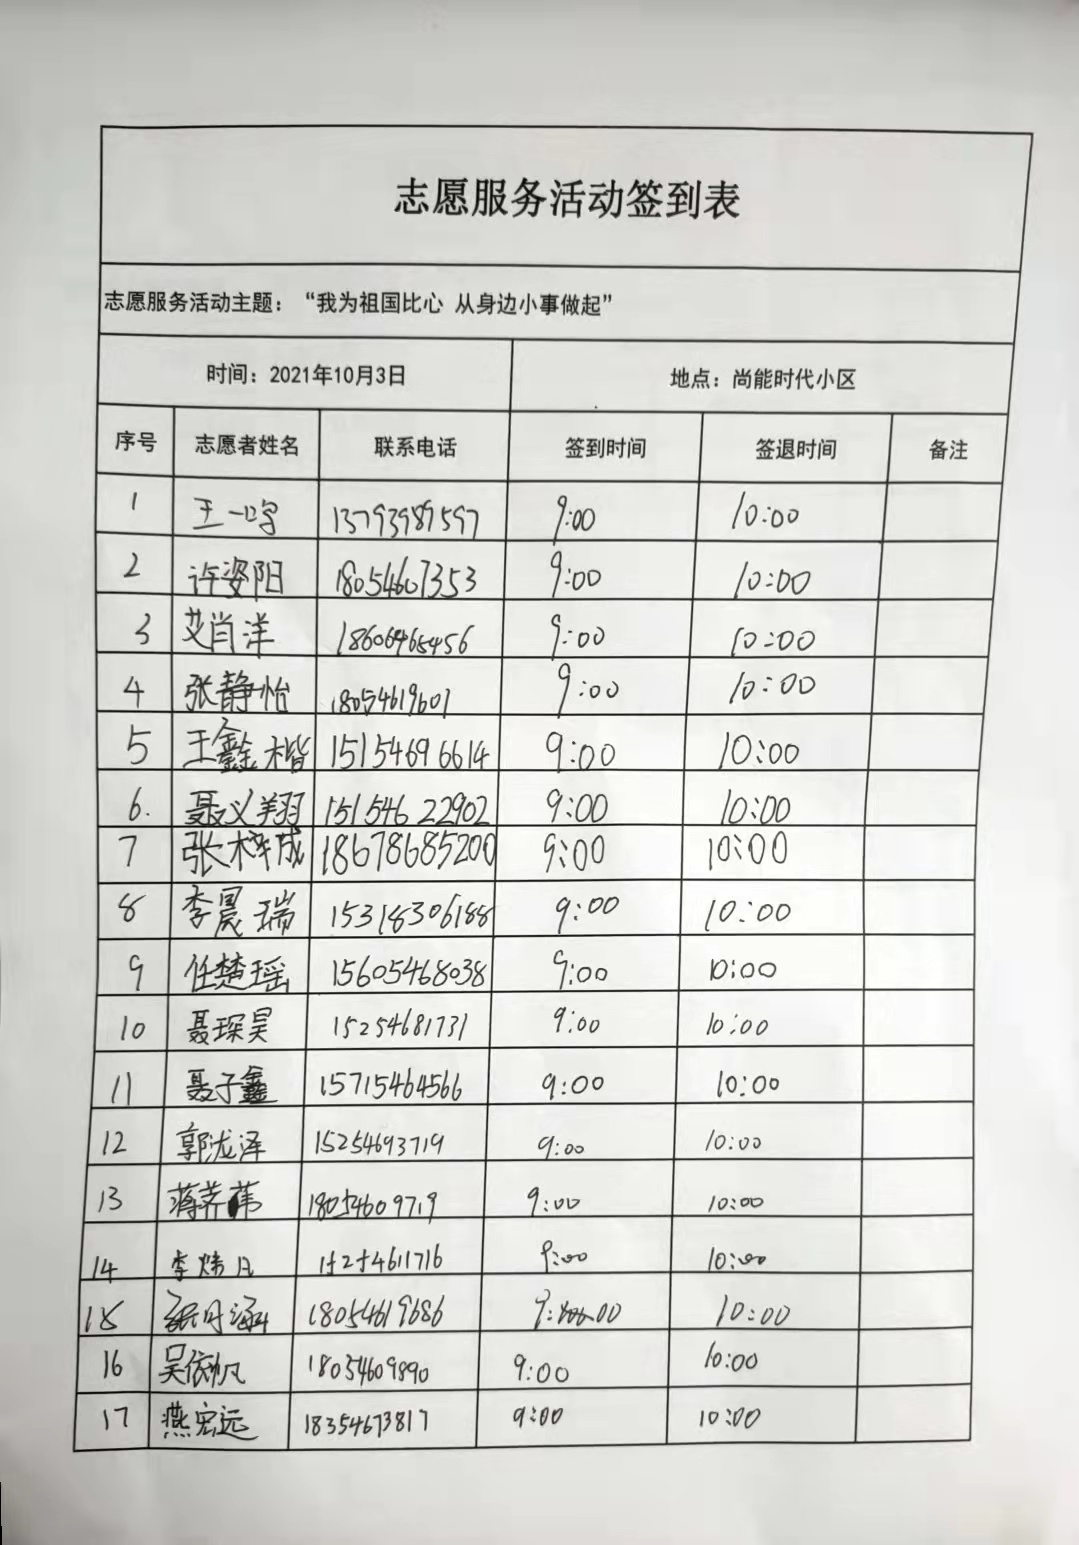 志愿服务活动签到表
志愿服务活动主题：“我为祖国比心 从身边小事做起”
时间：2021年10月3日 地点：尚能时代小区
序号 志愿者姓名 联系电话 签到时间 签退时间 备注
1 王一 13793989597 9:00 10:00
2 许姿阳 18054607353 9:00 10:00
3 艾肖洋 9:00 10:00
4 张静怡 18054619601 9:00 10:00
5 王鑫楷 15154696614 9:00 10:00
6. 聂义翔 15154622902 9:00 10:00
7 张梓成 18678685200 9:00 10:00
8 李晨瑞 15318306188 9:00 10:00
9 任楚瑶 15605468038 9:00 10:00
10 聂琛昊 15254681731 9:00 10:00
11 聂子鑫 15715464566 9:00 10:00
12 郭泷泽 15254693719 9:00 10:00
13 蒋荞 18054609719 9:00 10:00
14 李炜凡 15254611716 9:00 10:00
15 18054619686 9:00 10:00
16 吴依凡 18054609890 9:00 10:00
17 燕宏远 18354673817 9:00 10:00